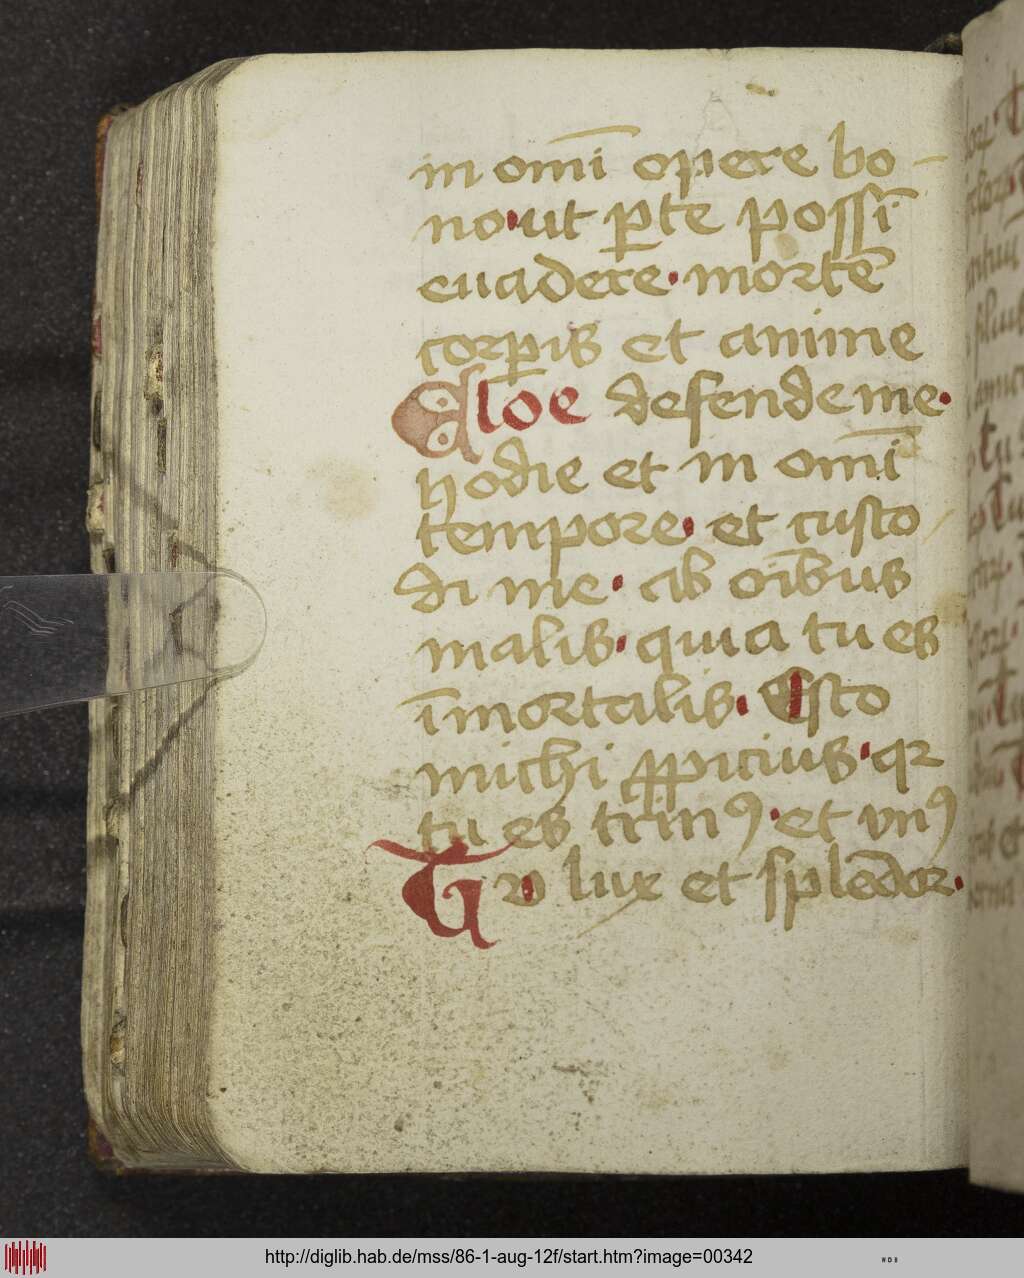 in om̄i opere bo-
no·ut ꝑte possī
euadere·mortē
corꝑis et anime
Eloe defende me·
hodie et in om̄i
tempore·et custo
di me·ab oībus
malis·quia tu es
īmortalis·Esto
michi ꝓpicius·qꝛ
tu es trinꝰ·et vnꝰ
Tu lux et splēdor·
http://diglib.hab.de/mss/86-1-aug-12f/start.htm?image=00342